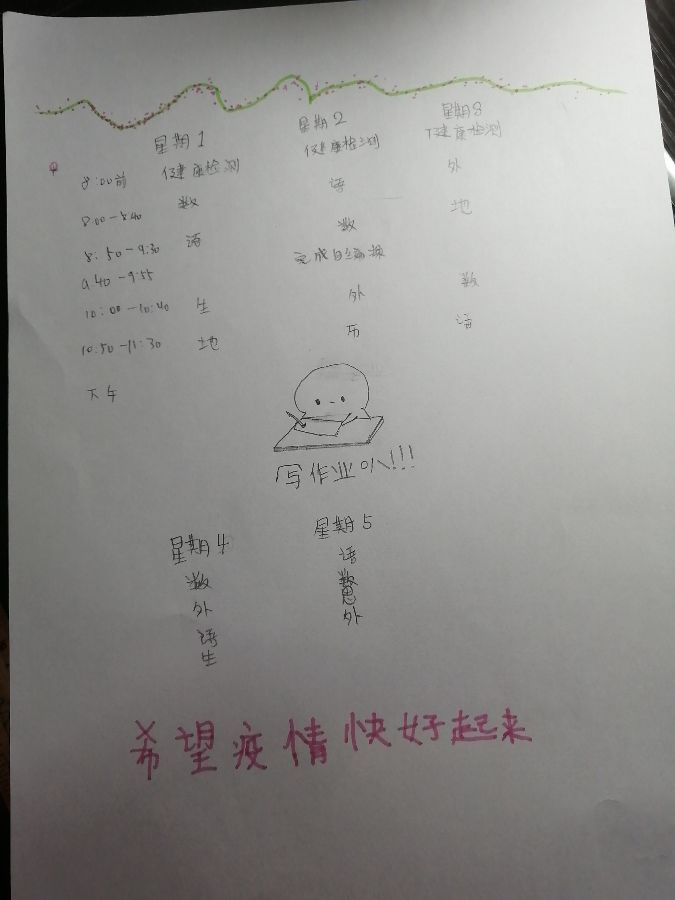 星期1 星期2 星期3
8:00前 健康检测 健康检测 健康检测
8:00-8:40 数 语 外
8:50-9:30 语 数 地
9:40-9:55 完成自编操
10:00-10:40 生 外 数
10:50-11:30 地 历 语
下午
写作业叭!!!
星期4 星期5
数 语
外 数
语 思
生 外
希望疫情快好起来